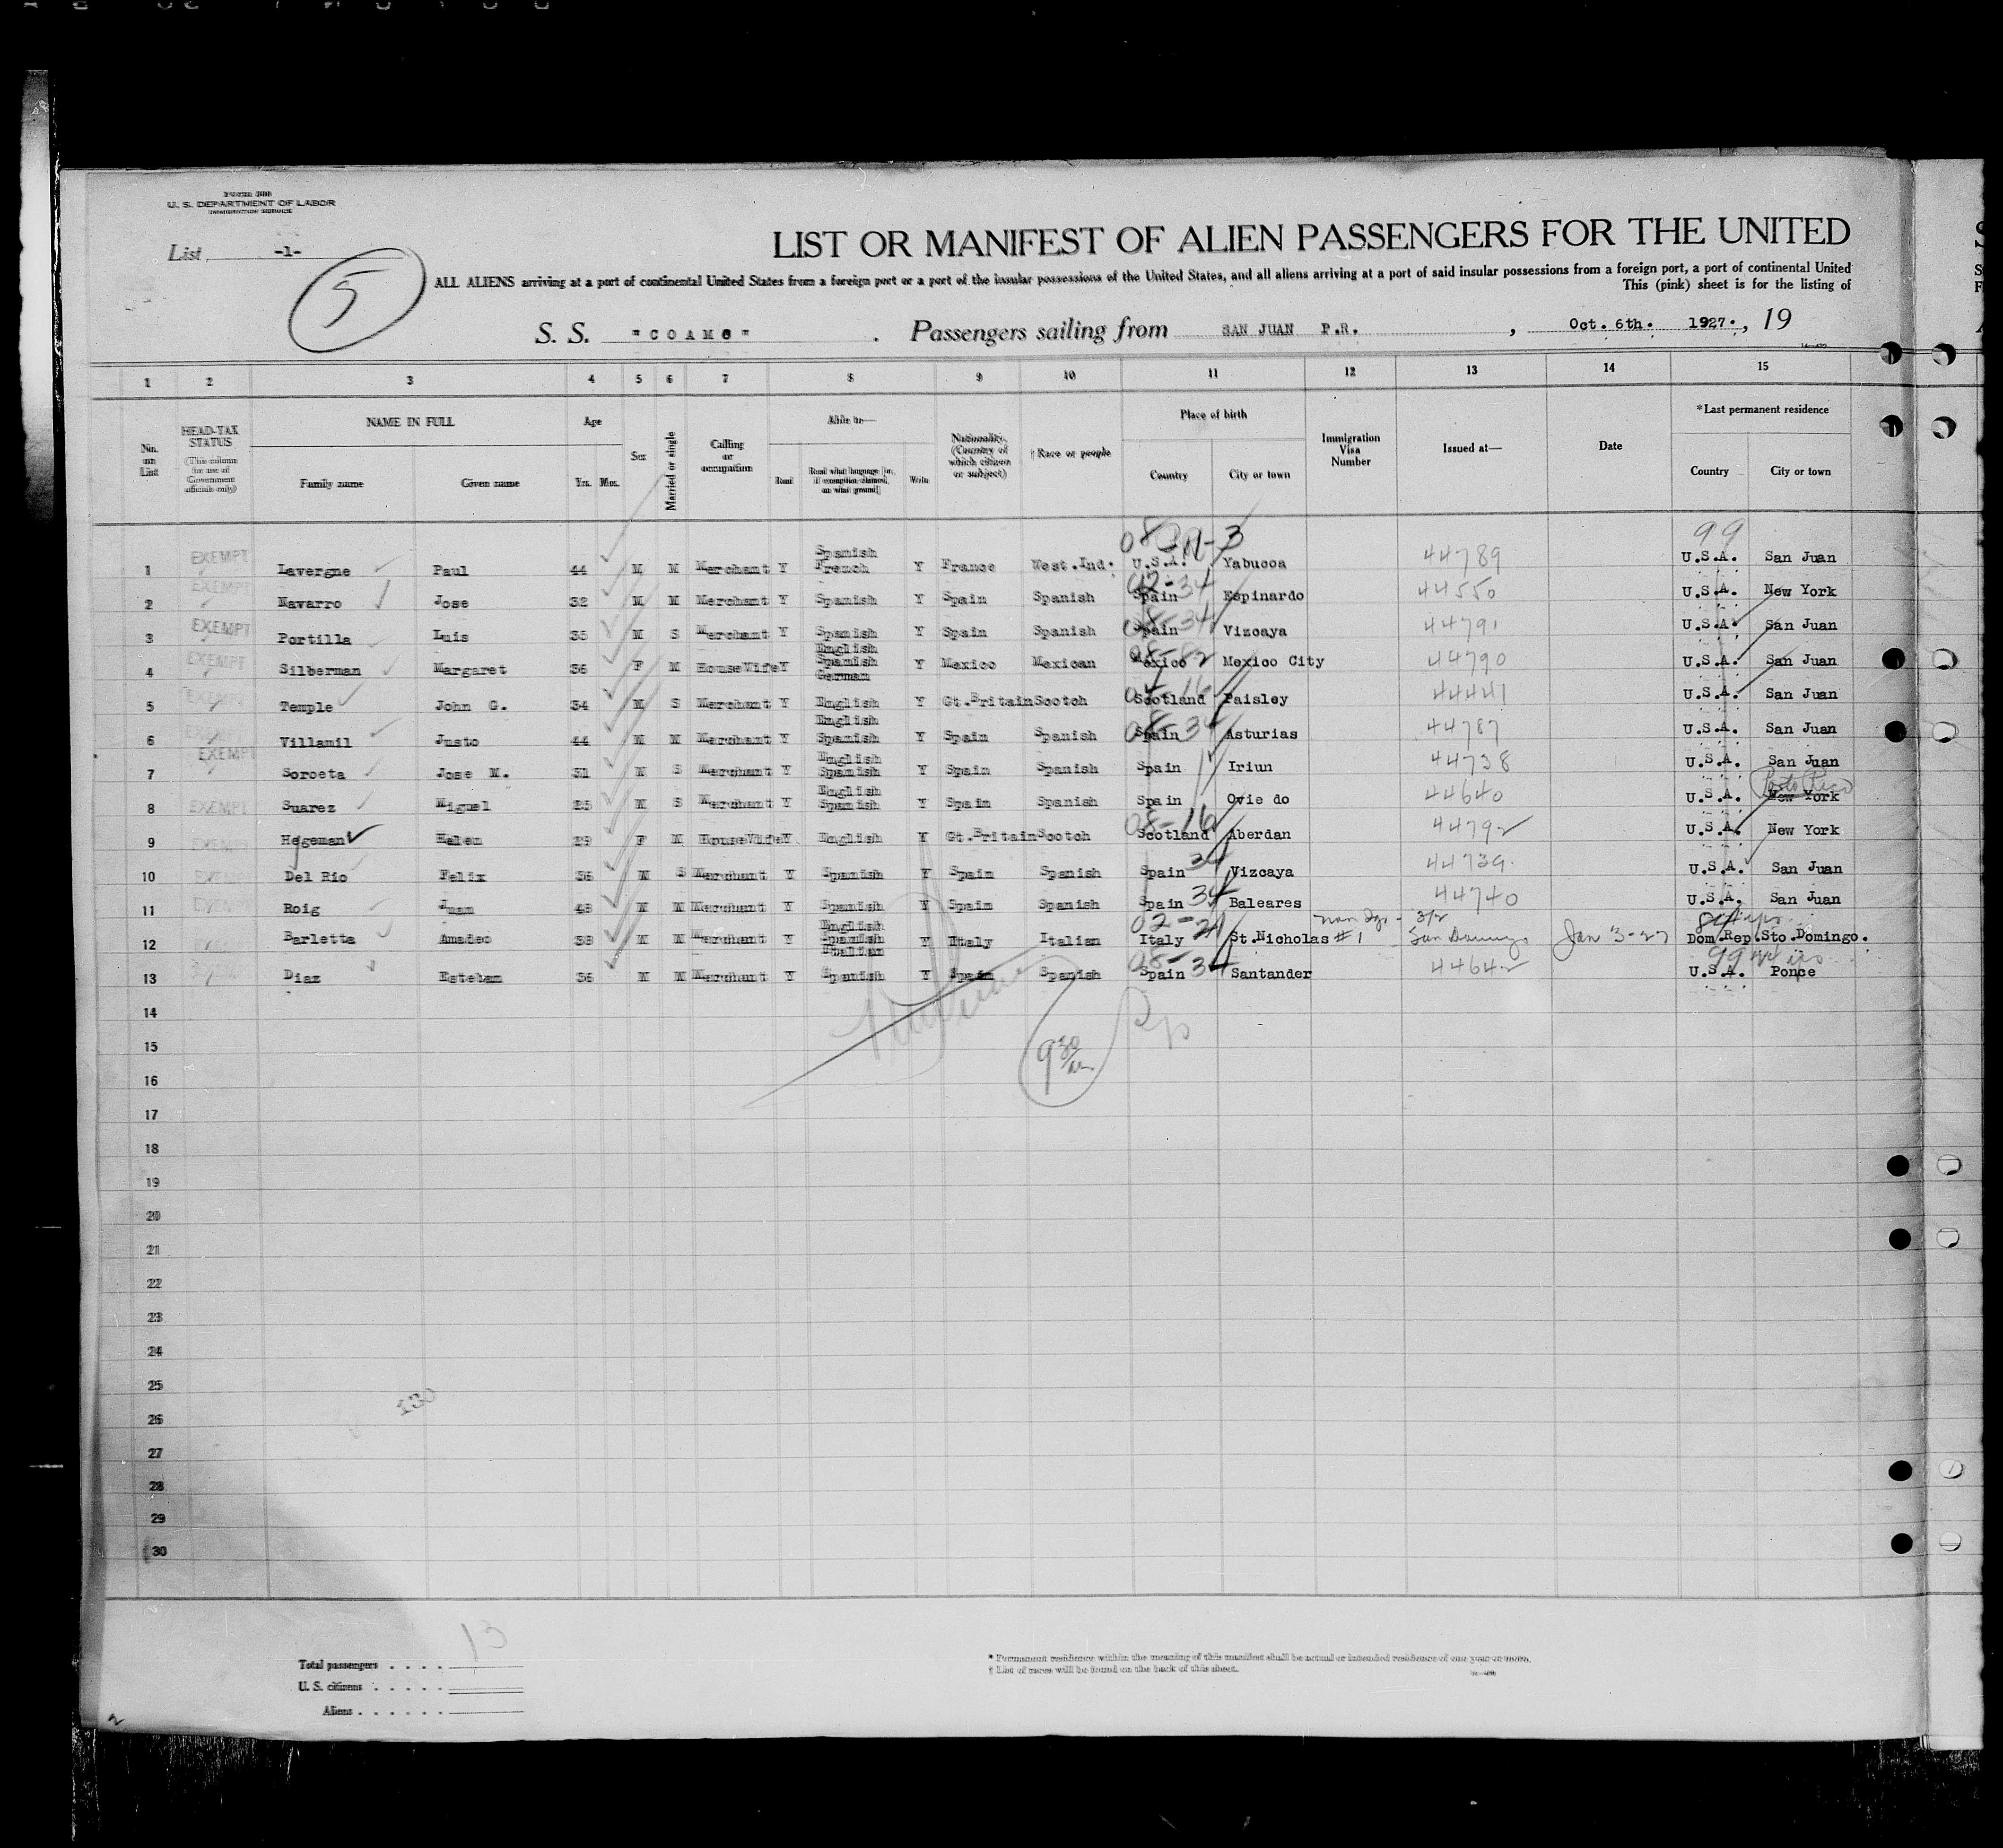 Form 500
U. S. DEPARTMENT OF LABOR
IMMIGRATION SERVICE
List -1-
5
LIST OR MANIFEST OF ALIEN PASSENGERS FOR THE UNITED
ALL ALIENS arriving at a port of continental United States from a foreign port or a port of the insular possessions of the United States, and all aliens arriving at a port of said insular possessions from a foreign port, a port of continental United
This (pink) sheet is for the listing of
S. S. "COAMO". Passengers sailing from SAN JUAN P.R., Oct. 6th. 1927., 19
1 2 3 4 5 6 7 8 9 10 11 12 13 14 15
No. on List
HEAD-TAX STATUS (This column for use of Government officials only)
NAME IN FULL Family name Given name
Age Yrs. Mos.
Sex
Married or single
Calling or occupation
Able to— Read Read what language [or, if exemption claimed, on what ground] Write
Nationality. (Country of which citizen or subject)
† Race or people
Place of birth Country City or town
Immigration Visa Number
Issued at—
Date
*Last permanent residence Country City or town
99
1 EXEMPT Lavergne Paul 44 M M Merchant Y Spanish French Y France West.Ind. U.S.A. Yabucoa 44789 U.S.A. San Juan
2 EXEMPT Navarro Jose 32 M M Merchant Y Spanish Y Spain Spanish Spain Espinardo 44550 U.S.A. New York
3 EXEMPT Portilla Luis 35 M S Merchant Y Spanish Y Spain Spanish Spain Vizcaya 44791 U.S.A. San Juan
4 EXEMPT Silberman Margaret 36 F M HouseWife Y English Spanish German Y Mexico Mexican Mexico Mexico City 44790 U.S.A. San Juan
5 Temple John G. 34 M S Merchant Y English Y Gt.Britain Scotch Scotland Paisley 44441 U.S.A. San Juan
6 EXEMPT Villamil Justo 44 M M Merchant Y English Spanish Y Spain Spanish Spain 34 Asturias 44787 U.S.A. San Juan
7 EXEMPT Soroeta Jose M. 31 M S Merchant Y English Spanish Y Spain Spanish Spain Iriun 44738 U.S.A. San Juan
8 EXEMPT Suarez Miguel 25 M S Merchant Y English Spanish Y Spain Spanish Spain Ovie do 44640 U.S.A. New York Porto Rico
9 EXEMPT Hegeman Helen 29 F M HouseWife Y English Y Gt.Britain Scotch 08-16 Scotland Aberdan 44792 U.S.A. New York
10 EXEMPT Del Rio Felix 36 M S Merchant Y Spanish Y Spain Spanish Spain 34 Vizcaya 44739 U.S.A. San Juan
11 EXEMPT Roig Juan 43 M M Merchant Y Spanish Y Spain Spanish Spain 34 Baleares 44740 U.S.A. San Juan
12 Barletta Amadeo 33 M M Merchant Y English Spanish Italian Y Italy Italian Italy St.Nicholas #1 3/2 San Domingo Jan 3-27 Dom.Rep. Sto.Domingo.
13 Diaz Esteban 36 M M Merchant Y Spanish Y Spain Spanish Spain 34 Santander 44642 99 U.S.A. Ponce
14
15
9 30
16
17
18
19
20
21
22
23
24
25
130
26
27
28
29
30
Total passengers . . . . 13
U. S. citizens . . . . .
Aliens . . . . . .
* Permanent residence within the meaning of this manifest shall be actual or intended residence of one year or more.
† List of races will be found on the back of this sheet.